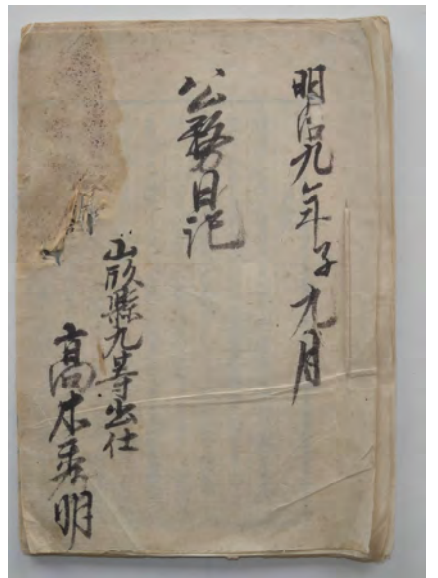 明治九年子九月
公務日記
山形縣九等出仕
高木秀明